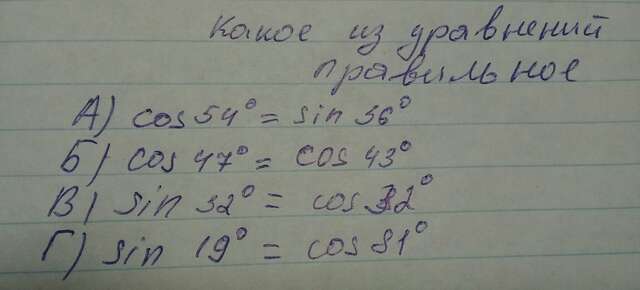 Какое из уравнений
правильное
А) cos 54° = sin 36°
Б) cos 47° = cos 43°
В) sin 32° = cos 32°
Г) sin 19° = cos 81°